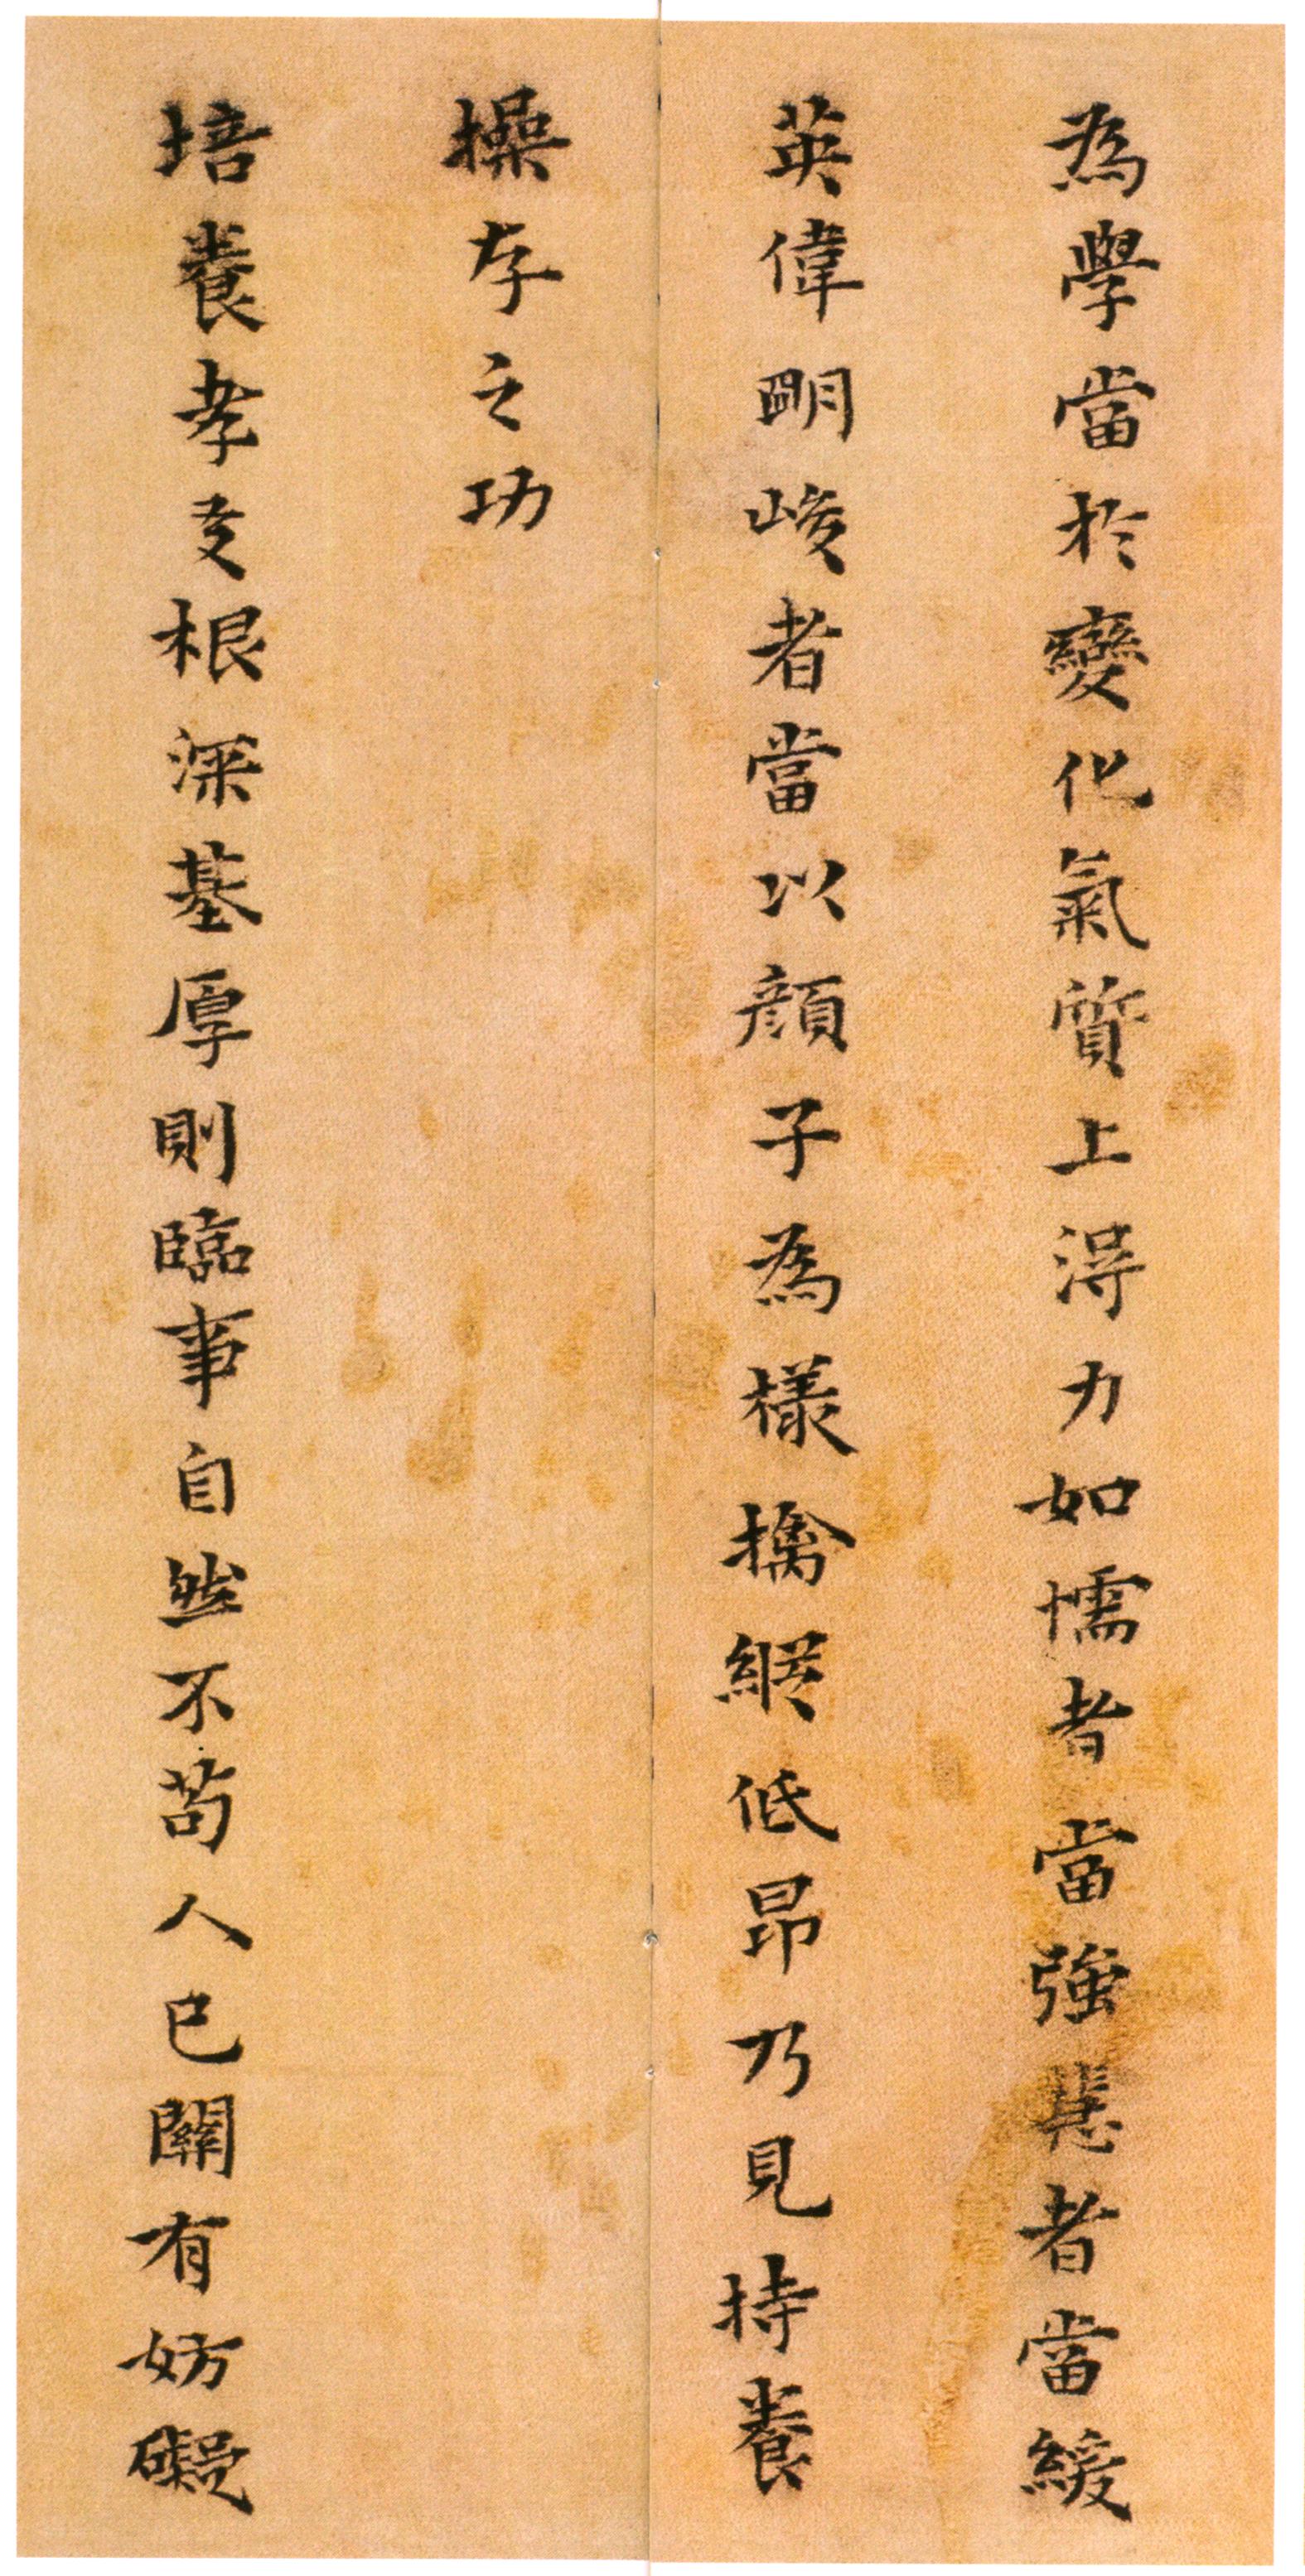 為學當於變化氣質上淂力如懦者當強急者當緩
英偉明峻者當以顔子為樣擒縱低昂乃見持養
操存之功
培養孝友根深基厚則臨事自然不苟人已關有妨礙